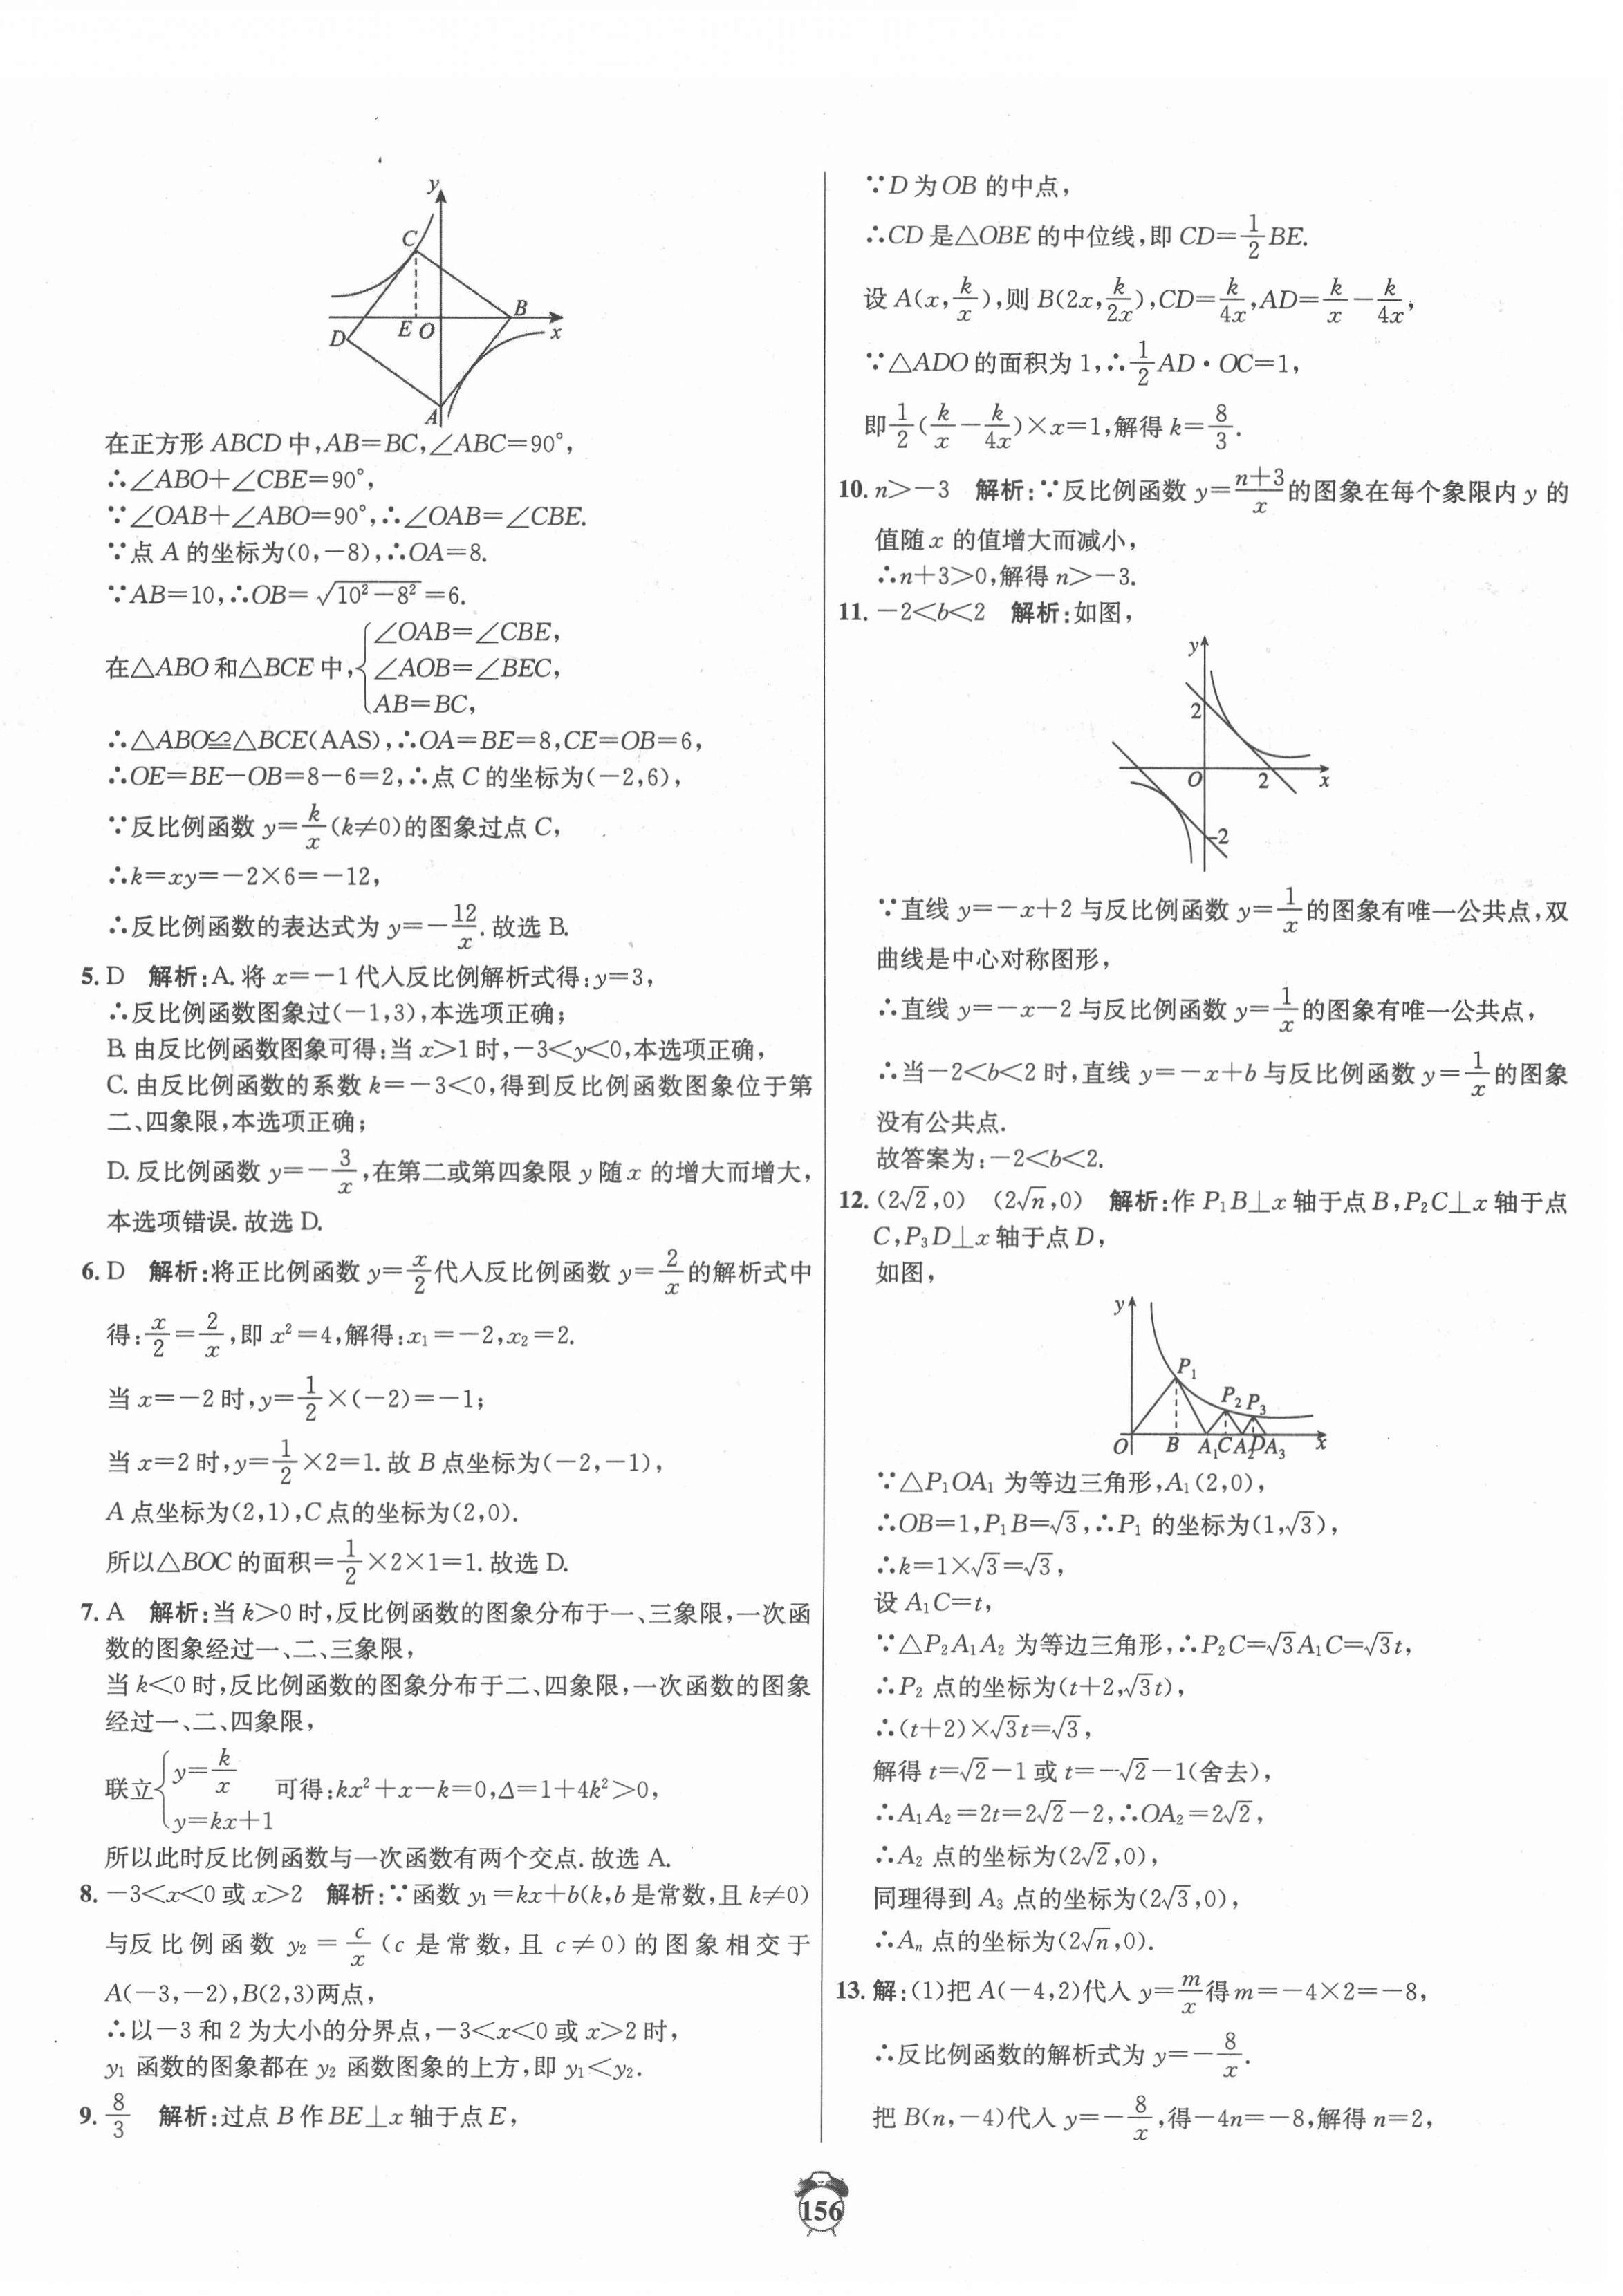 y
C
B
E O
x
D
A
在正方形 ABCD 中,AB=BC,∠ABC=90°,
∴∠ABO+∠CBE=90°,
∵∠OAB+∠ABO=90°,∴∠OAB=∠CBE.
∵点 A 的坐标为(0,-8),∴OA=8.
∵AB=10,∴OB=√(10²-8²)=6.
在△ABO 和△BCE 中,{∠OAB=∠CBE,
∠AOB=∠BEC,
AB=BC,
∴△ABO≌△BCE(AAS),∴OA=BE=8,CE=OB=6,
∴OE=BE-OB=8-6=2,∴点 C 的坐标为(-2,6),
∵反比例函数 y=k/x(k≠0)的图象过点 C,
∴k=xy=-2×6=-12,
∴反比例函数的表达式为 y=-12/x.故选 B.
5. D 解析:A. 将 x=-1 代入反比例解析式得:y=3,
∴反比例函数图象过(-1,3),本选项正确;
B. 由反比例函数图象可得:当 x>1 时,-3<y<0,本选项正确,
C. 由反比例函数的系数 k=-3<0,得到反比例函数图象位于第
二、四象限,本选项正确;
D. 反比例函数 y=-3/x,在第二或第四象限 y 随 x 的增大而增大,
本选项错误. 故选 D.
6. D 解析:将正比例函数 y=x/2代入反比例函数 y=2/x的解析式中
得:x/2=2/x,即 x²=4,解得:x₁=-2,x₂=2.
当 x=-2 时,y=1/2×(-2)=-1;
当 x=2 时,y=1/2×2=1. 故 B 点坐标为(-2,-1),
A 点坐标为(2,1),C 点的坐标为(2,0).
所以△BOC 的面积=1/2×2×1=1. 故选 D.
7. A 解析:当 k>0 时,反比例函数的图象分布于一、三象限,一次函
数的图象经过一、二、三象限,
当 k<0 时,反比例函数的图象分布于二、四象限,一次函数的图象
经过一、二、四象限,
联立{y=k/x
y=kx+1 可得:kx²+x-k=0,Δ=1+4k²>0,
所以此时反比例函数与一次函数有两个交点. 故选 A.
8. -3<x<0 或 x>2 解析:∵函数 y₁=kx+b(k,b 是常数,且 k≠0)
与反比例函数 y₂=c/x(c 是常数,且 c≠0)的图象相交于
A(-3,-2),B(2,3)两点,
∴以-3 和 2 为大小的分界点,-3<x<0 或 x>2 时,
y₁ 函数的图象都在 y₂ 函数图象的上方,即 y₁<y₂.
9. 8/3 解析:过点 B 作 BE⊥x 轴于点 E,
∵D 为 OB 的中点,
∴CD 是△OBE 的中位线,即 CD=1/2BE.
设 A(x,k/x),则 B(2x,k/2x),CD=k/4x,AD=k/x-k/4x,
∵△ADO 的面积为 1,∴1/2AD·OC=1,
即1/2(k/x-k/4x)×x=1,解得 k=8/3.
10. n>-3 解析:∵反比例函数 y=(n+3)/x的图象在每个象限内 y 的
值随 x 的值增大而减小,
∴n+3>0,解得 n>-3.
11. -2<b<2 解析:如图,
y
2
O
2
x
-2
∵直线 y=-x+2 与反比例函数 y=1/x的图象有唯一公共点,双
曲线是中心对称图形,
∴直线 y=-x-2 与反比例函数 y=1/x的图象有唯一公共点,
∴当-2<b<2 时,直线 y=-x+b 与反比例函数 y=1/x的图象
没有公共点.
故答案为:-2<b<2.
12. (2√2,0) (2√n,0) 解析:作 P₁B⊥x 轴于点 B,P₂C⊥x 轴于点
C,P₃D⊥x 轴于点 D,
如图,
y
P₁
P₂ P₃
O B A₁ C A₂ D A₃ x
∵△P₁OA₁ 为等边三角形,A₁(2,0),
∴OB=1,P₁B=√3,∴P₁ 的坐标为(1,√3),
∴k=1×√3=√3,
设 A₁C=t,
∵△P₂A₁A₂ 为等边三角形,∴P₂C=√3A₁C=√3t,
∴P₂ 点的坐标为(t+2,√3t),
∴(t+2)×√3t=√3,
解得 t=√2-1 或 t=-√2-1(舍去),
∴A₁A₂=2t=2√2-2,∴OA₂=2√2,
∴A₂ 点的坐标为(2√2,0),
同理得到 A₃ 点的坐标为(2√3,0),
∴Aₙ 点的坐标为(2√n,0).
13. 解:(1)把 A(-4,2)代入 y=m/x得 m=-4×2=-8,
∴反比例函数的解析式为 y=-8/x.
把 B(n,-4)代入 y=-8/x,得-4n=-8,解得 n=2,
156